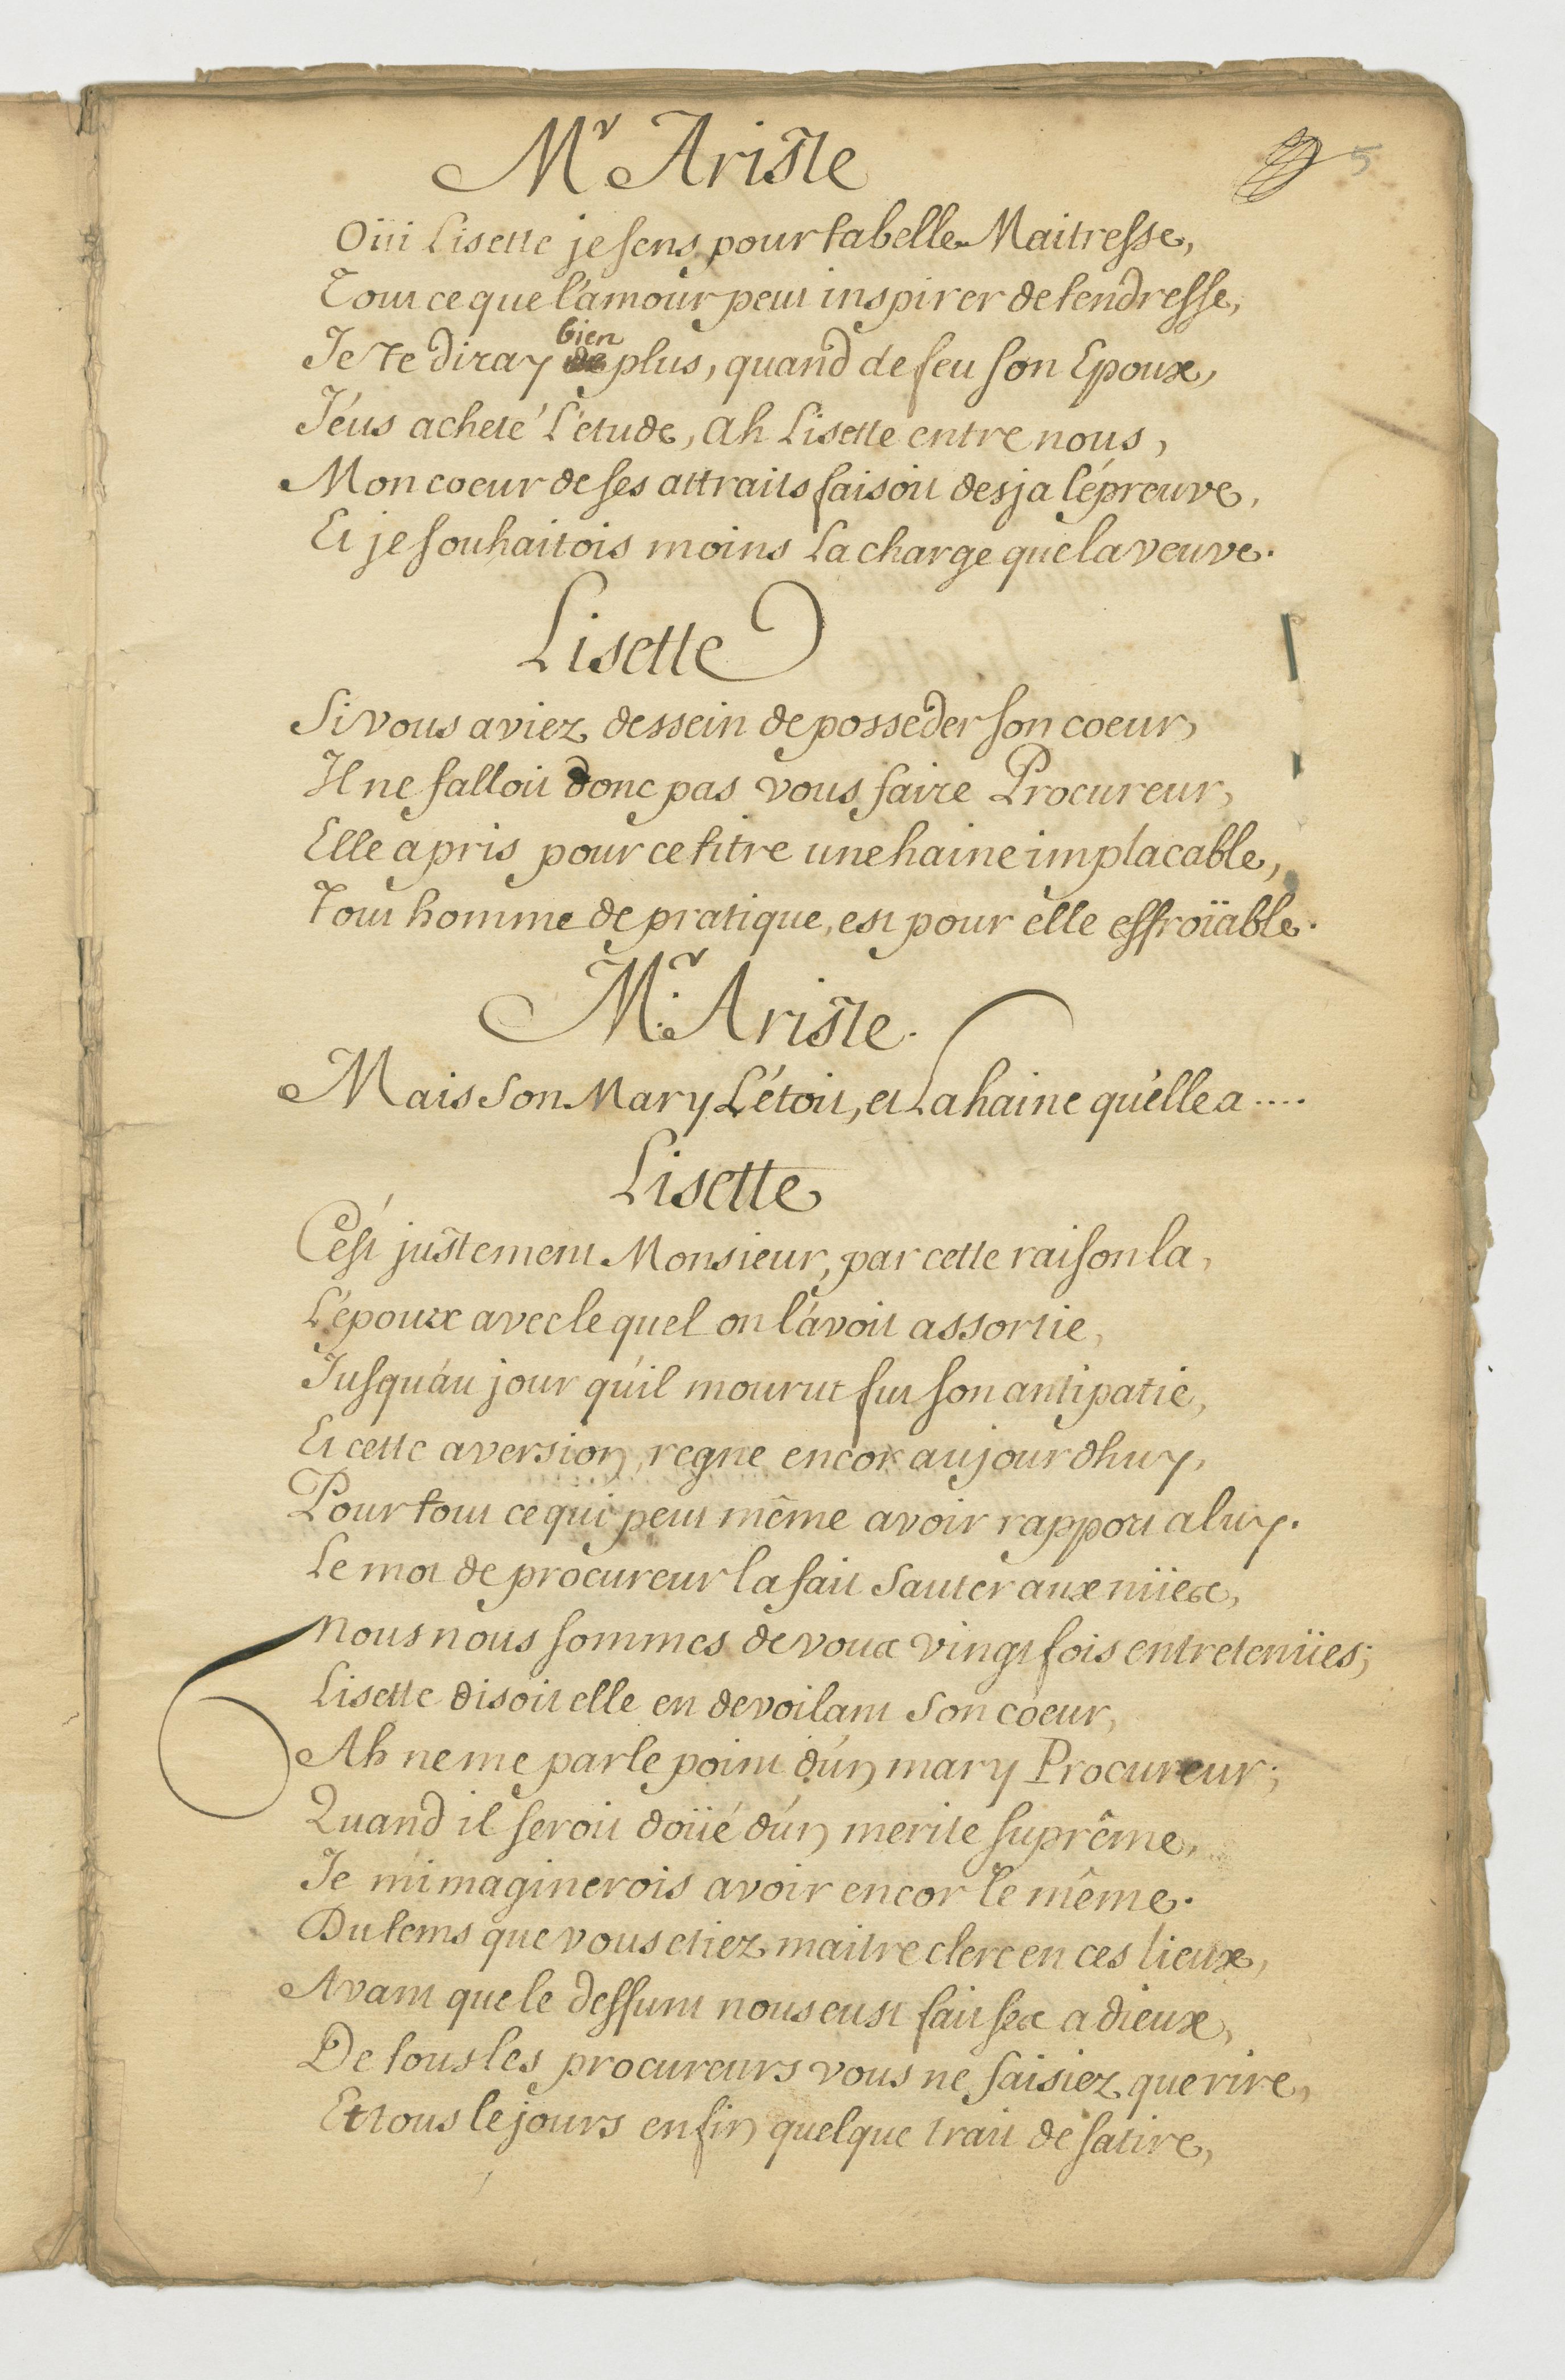 Mr Ariste
5
Oüi Lisette je sens pour ta belle Maitresse,
Tout ce que l'amour peut inspirer de tendresse,
Je te diray bien plus, quand de feu son Epoux,
J'éus acheté L'etude, ah Lisette entre nous,
Mon coeur de ses attraits faisoit desja l'épreuve,
Et je souhaitois moins La charge que la veuve.
Lisette
Si vous aviez dessein de posseder son coeur,
Il ne falloit donc pas vous faire Procureur,
Elle a pris pour ce titre une haine implacable,
Tout homme de pratique, est pour elle effroïable.
Mr. Ariste.
Mais son Mary L'étoit, et La haine qu'elle a ....
Lisette
C'est justement Monsieur, par cette raison la,
L'époux avec le quel on l'avoit assortie,
Jusqu'au jour qu'il mourut fut son antipatie,
Et cette aversion, regne encor aujourdhuy,
Pour tout ce qui peut même avoir rapport a luy.
Le mot de procureur la fait sauter aux nües,
Nous nous sommes de vous vingt fois entretenües;
Lisette disoit elle en devoilant son coeur,
Ah ne me parle point d'un mary Procureur;
Quand il seroit doüé d'un merite suprême,
Je m'imaginerois avoir encor le même.
Du tems que vous etiez maitre clerc en ces lieux,
Avant que le deffunt nous eust fait ses adieux,
De tous les procureurs vous ne faisiez que rire,
Et tous le jours enfin quelque trait de satire,